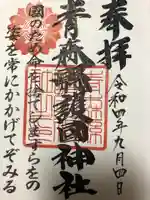 奉拝
令和四年九月四日
青森縣護國神社
國のため命を捨てしますらをの
姿を常にかかげてぞみる